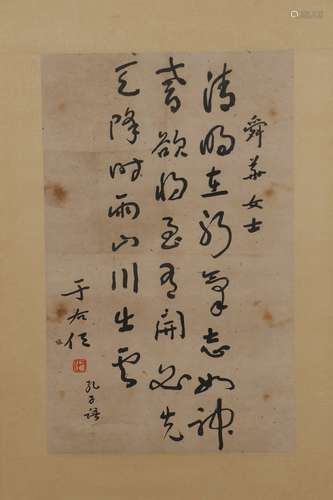 舜華女士
清明在躬氣志如神
耆欲將至有開必先
天降時雨山川出雲
于右任
孔子語